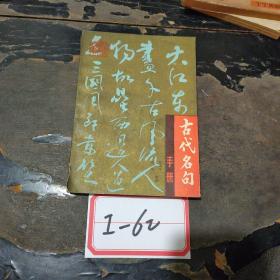 大江东
去浪淘尽千古风流人
物故垒西边人道
是三国周郎赤壁
古代名句
手册
I-62